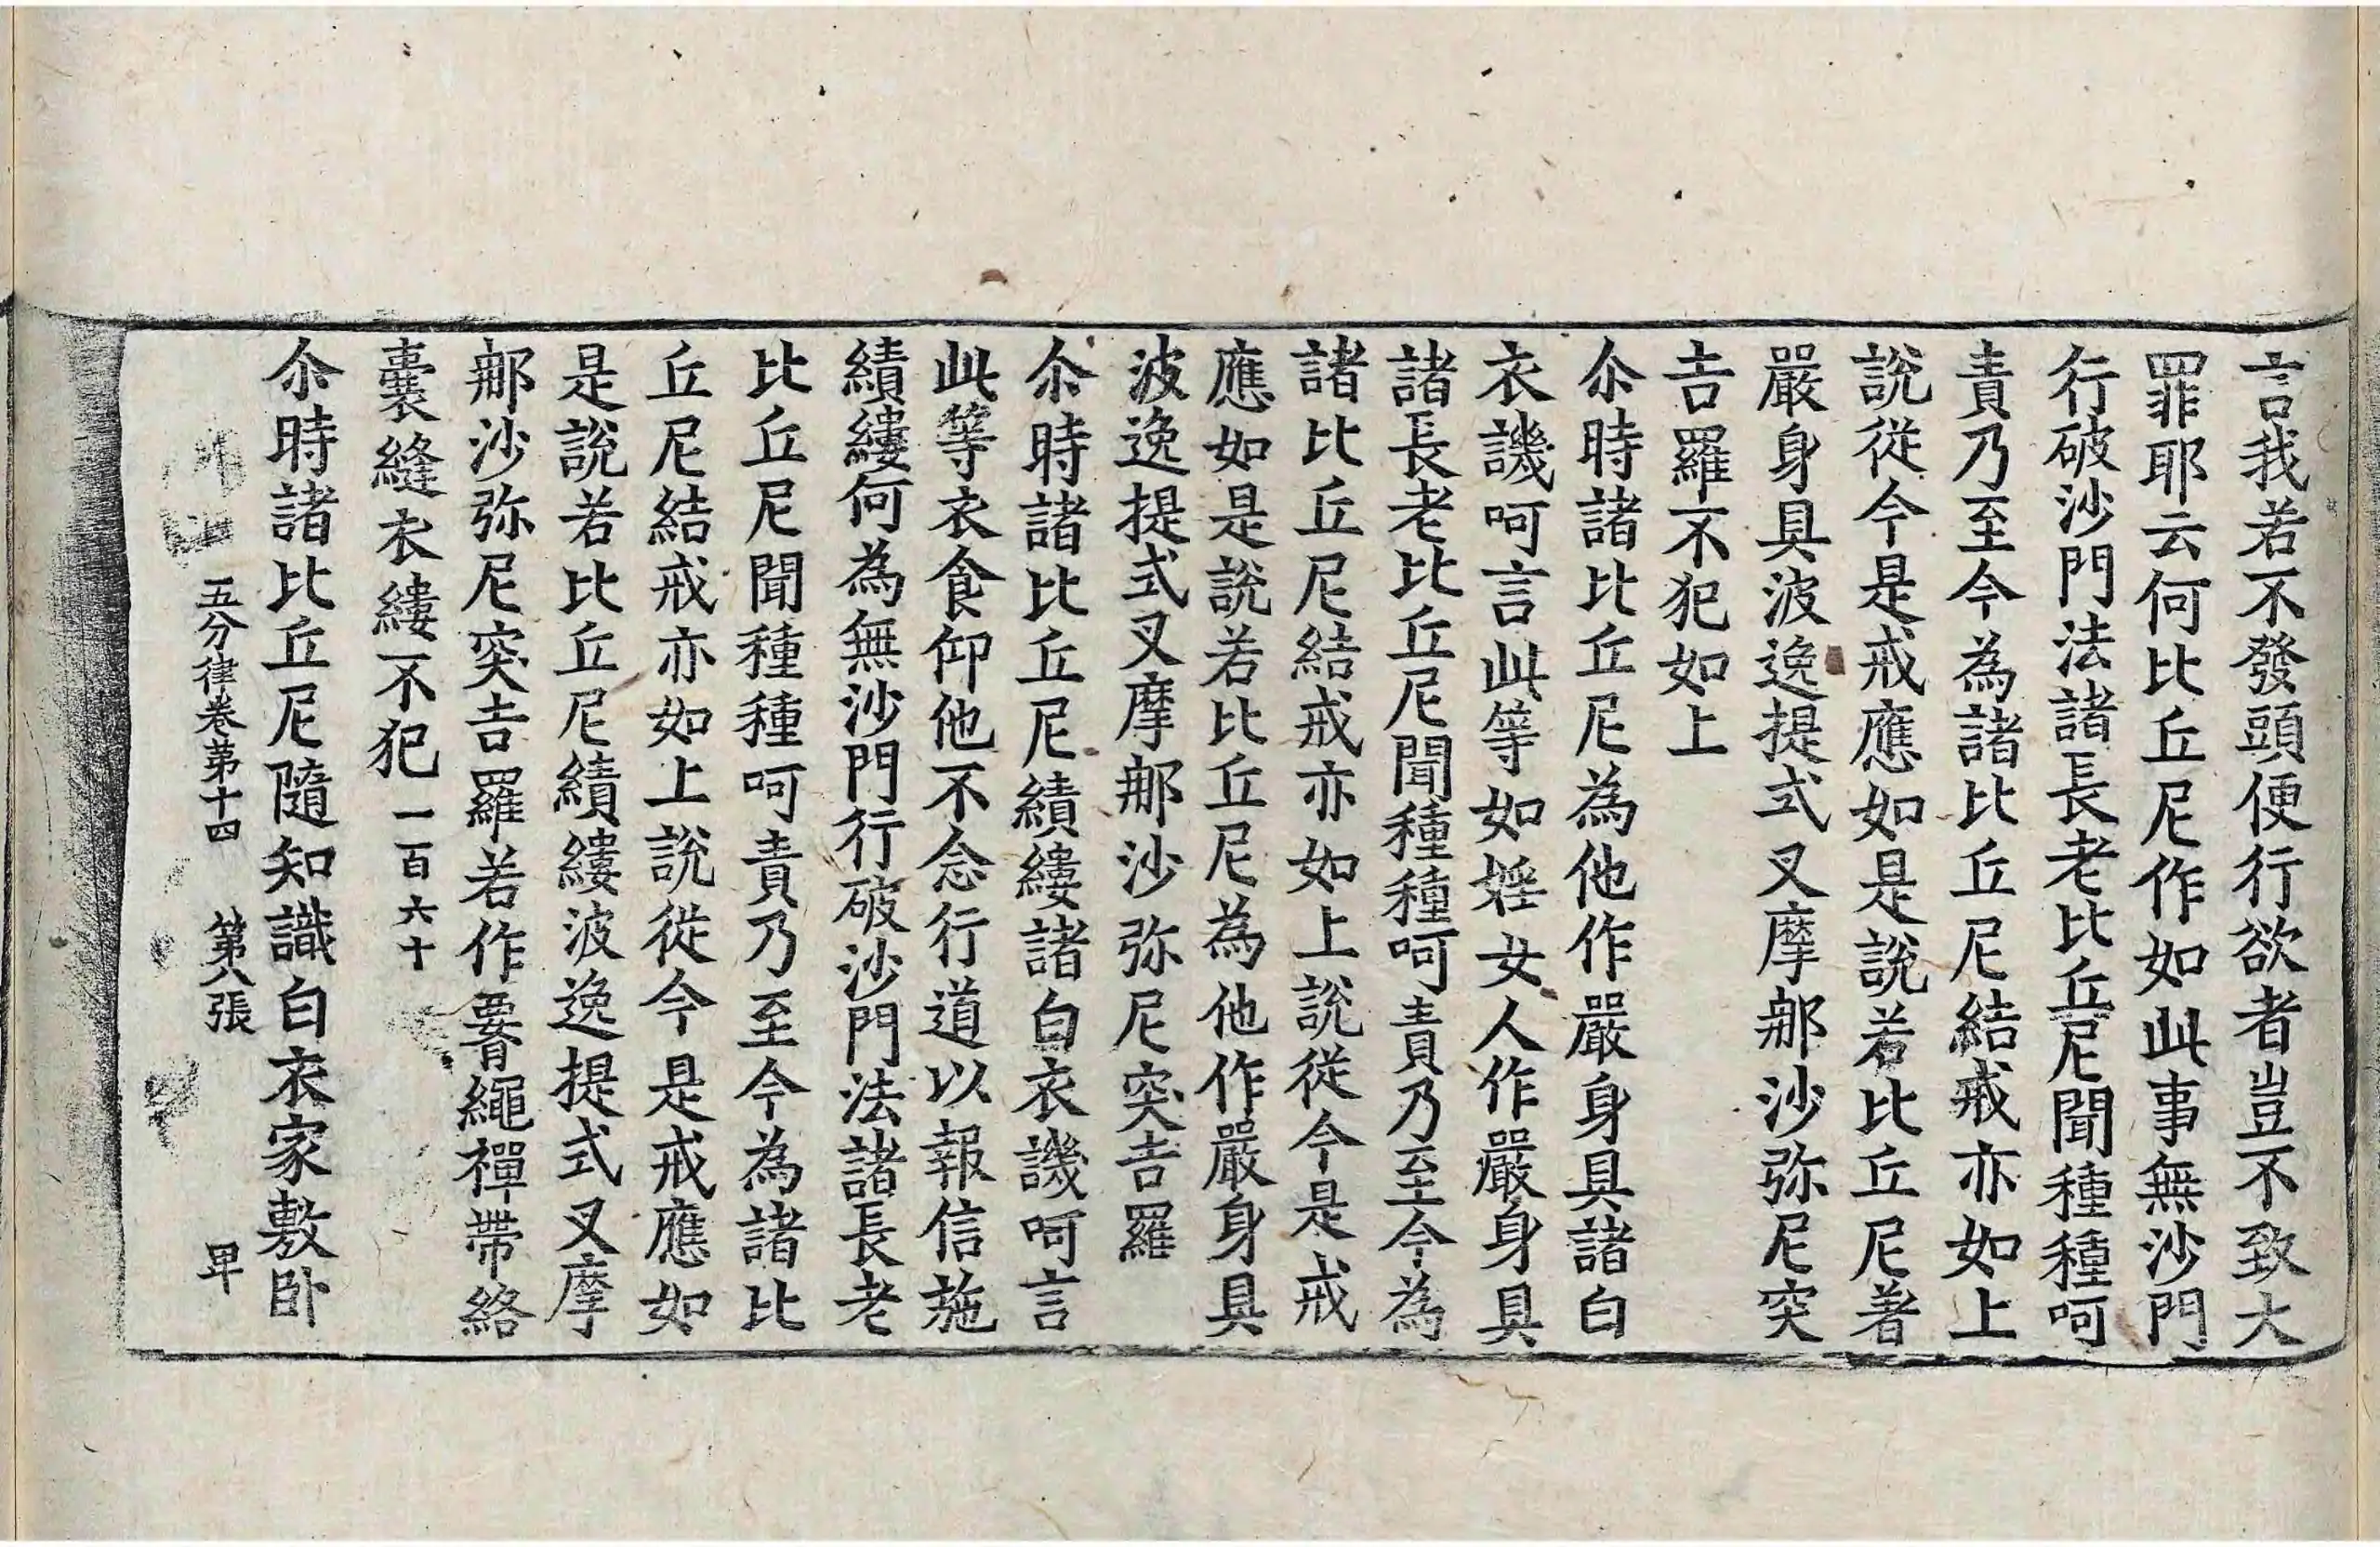 言我若不發頭便行欲者豈不致大
罪耶云何比丘尼作如此事無沙門
行破沙門法諸長老比丘尼聞種種呵
責乃至今為諸比丘尼結戒亦如上
說從今是戒應如是說若比丘尼著
嚴身具波逸提式叉摩䣯沙弥尼突
吉羅不犯如上
尒時諸比丘尼為他作嚴身具諸白
衣譏呵言此等如婬女人作嚴身具
諸長老比丘尼聞種種呵責乃至今為
諸比丘尼結戒亦如上說從今是戒
應如是說若比丘尼為他作嚴身具
波逸提式叉摩䣯沙弥尼突吉羅
尒時諸比丘尼績縷諸白衣譏呵言
此等衣食仰他不念行道以報信施
績縷何為無沙門行破沙門法諸長老
比丘尼聞種種呵責乃至今為諸比
丘尼結戒亦如上說從今是戒應如
是說若比丘尼績縷波逸提式叉摩
䣯沙弥尼突吉羅若作要繩禪帶絡
囊縫衣縷不犯一百六十
尒時諸比丘尼隨知識白衣家敷卧
五分律卷第十四 第八張 卑